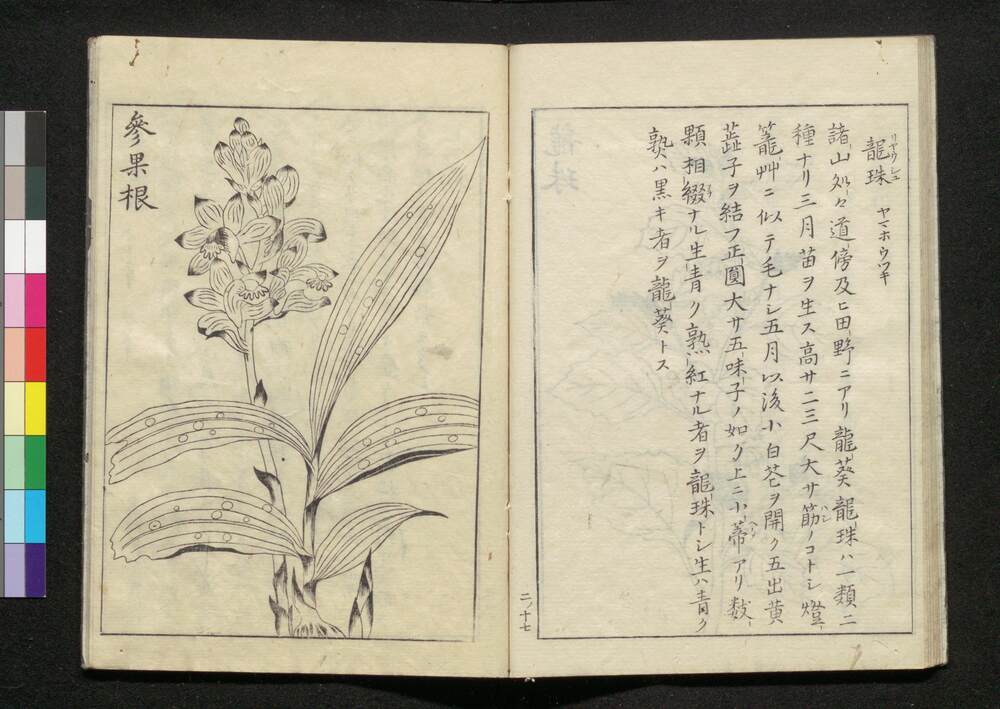 龍珠 リヤウシユ ヤマホウヅキ
諸山処々道傍及ヒ田野ニアリ龍葵龍珠ハ一類二
種ナリ三月苗ヲ生ス高サ二三尺大サ筋ノコトシ燈
籠艸ニ似テ毛ナシ五月以後小白花ヲ開ク五出黄
蕋子ヲ結フ正圓大サ五味子ノ如ク上ニ小蒂アリ数
顆相綴ナル生青ク熟紅ナル者ヲ龍珠トシ生ハ青ク
熟ハ黒キ者ヲ龍葵トス
二ノ十七
參果根